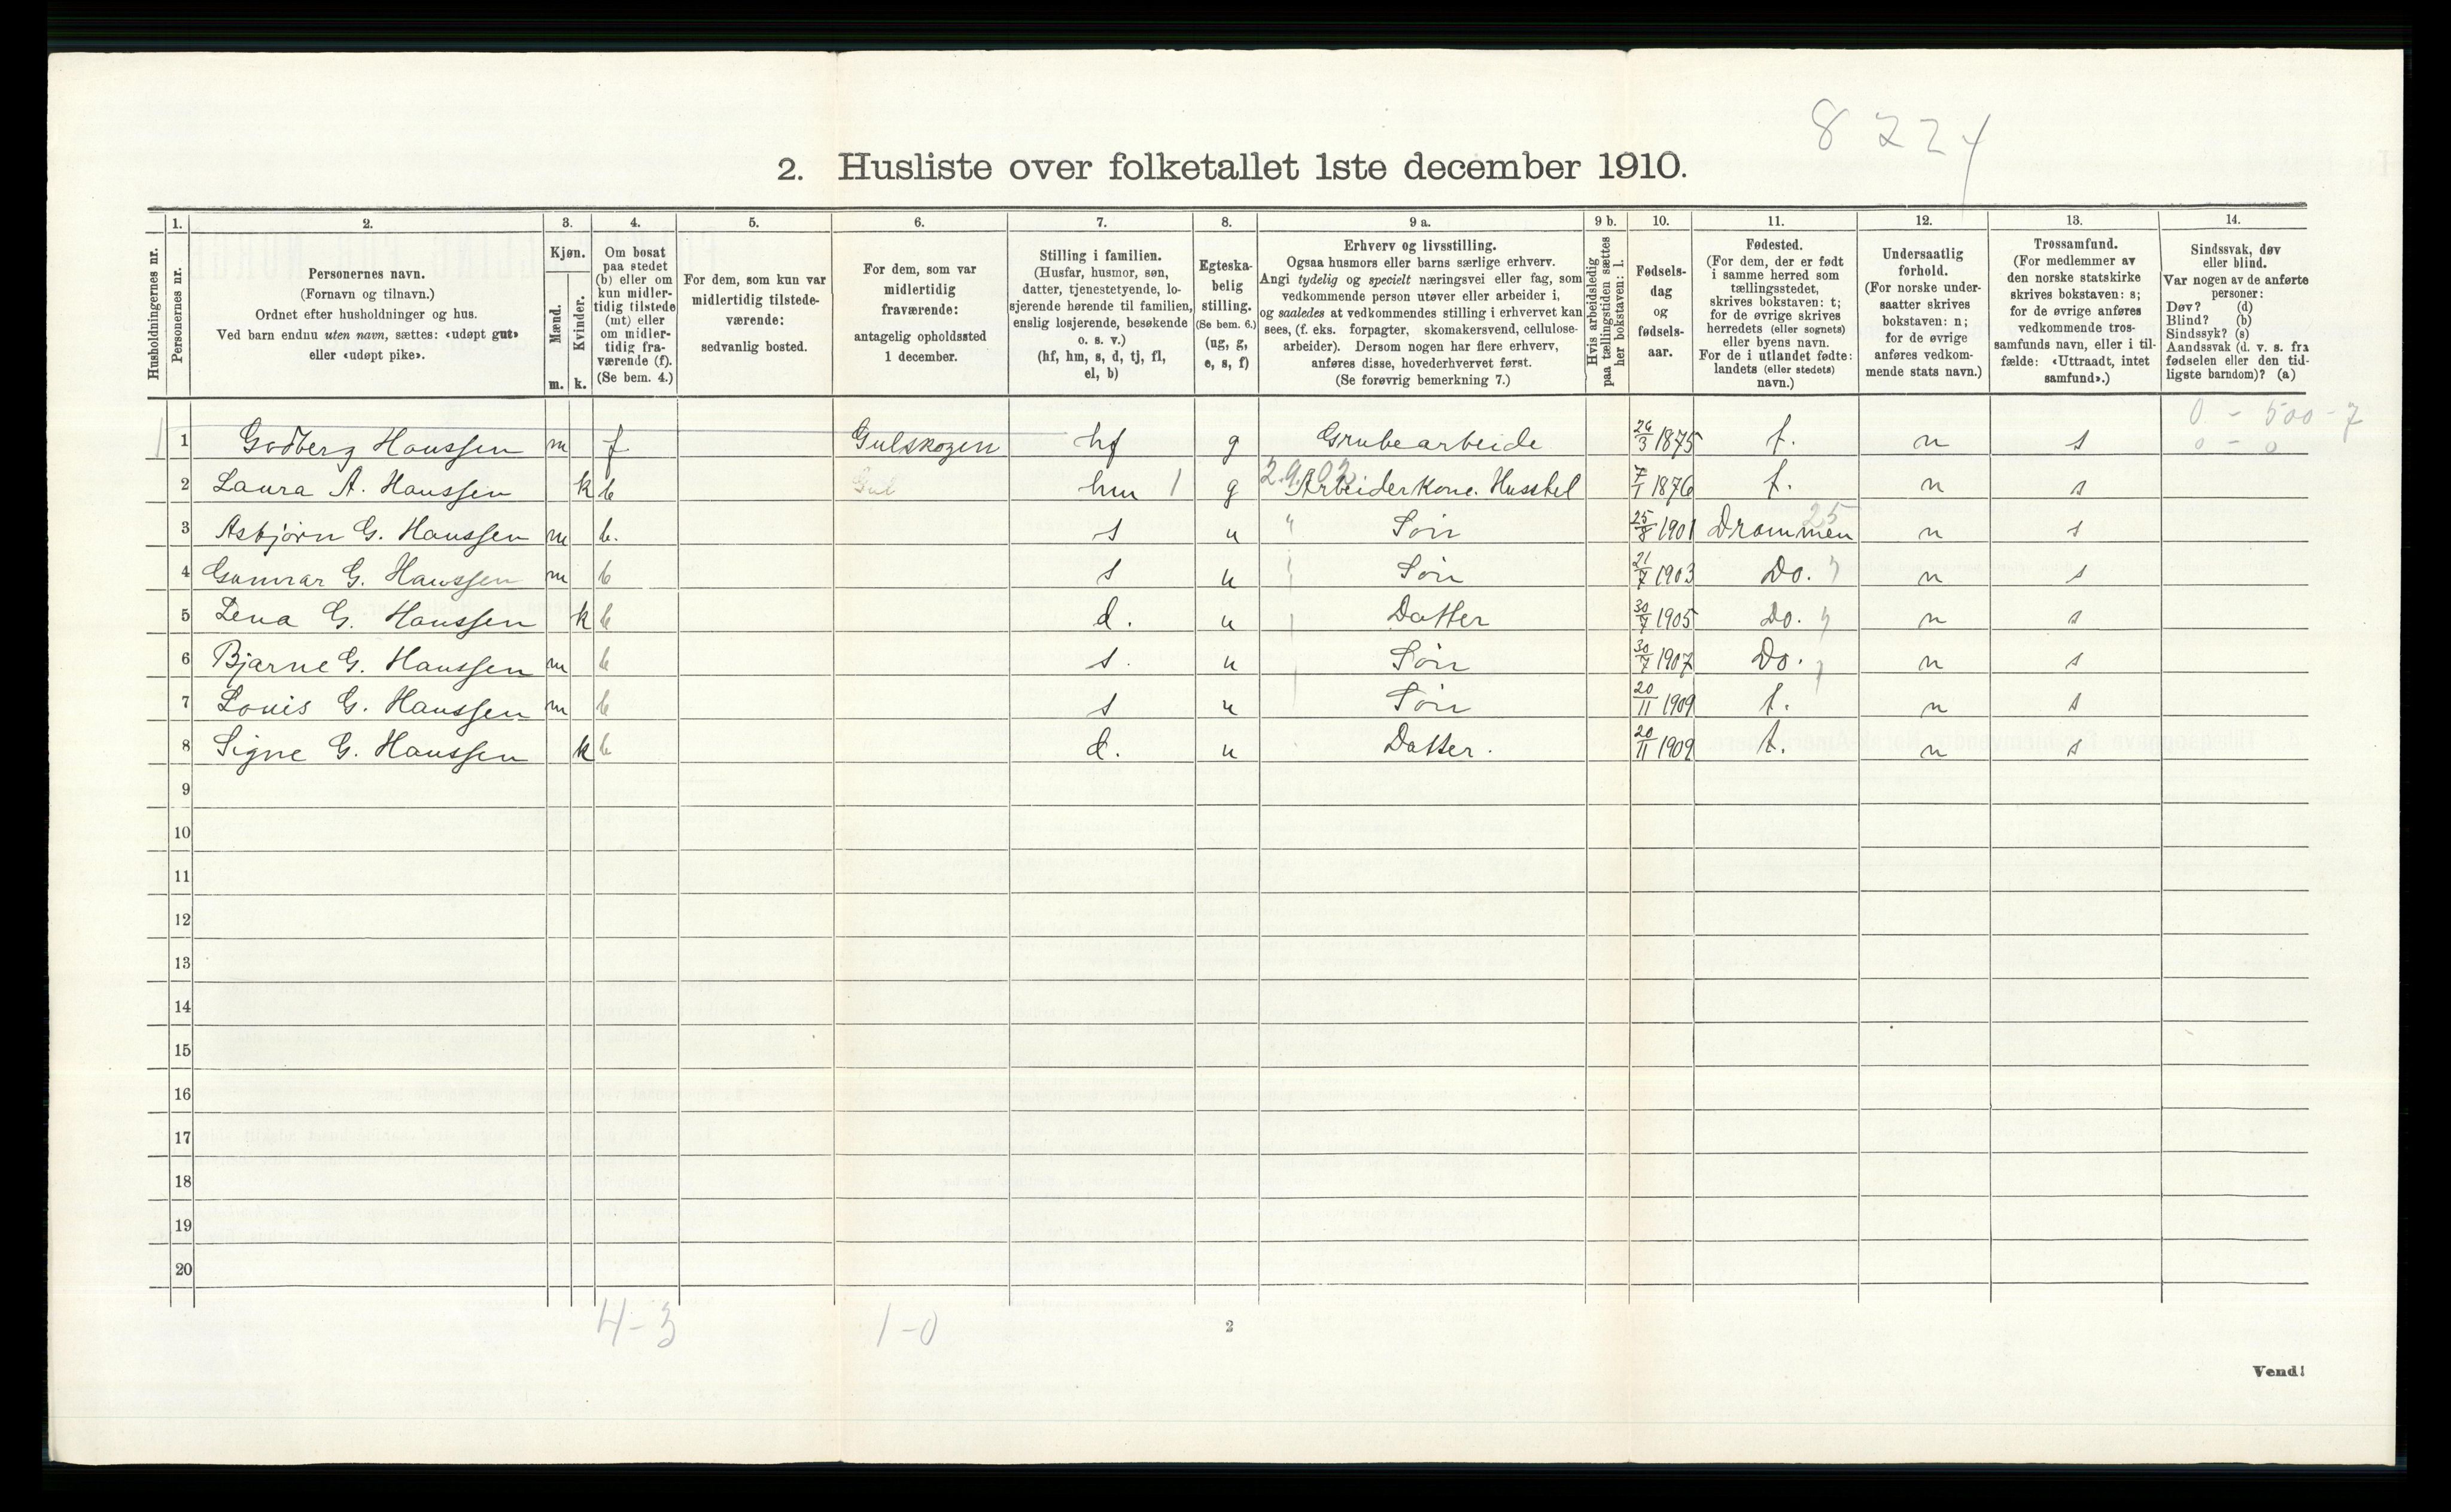 8 2 2 4
2. Husliste over folketallet 1ste december 1910.
Husholdningernes nr.
1.
Personernes nr.
2.
Personernes navn.
(Fornavn og tilnavn.)
Ordnet efter husholdninger og hus.
Ved barn endnu uten navn, sættes: «udøpt gut»
eller «udøpt pike».
3.
Kjøn.
Mænd.
m.
Kvinder.
k.
4.
Om bosat
paa stedet
(b) eller om
kun midler-
tidig tilstede
(mt) eller
om midler-
tidig fra-
værende (f).
(Se bem. 4.)
5.
For dem, som kun var
midlertidig tilstede-
værende:
sedvanlig bosted.
6.
For dem, som var
midlertidig
fraværende:
antagelig opholdssted
1 december.
7.
Stilling i familien.
(Husfar, husmor, søn,
datter, tjenestetyende, lo-
sjerende hørende til familien,
enslig losjerende, besøkende
o. s. v.)
(hf, hm, s, d, tj, fl,
el, b)
8.
Egteska-
belig
stilling.
(Se bem. 6.)
(ug, g,
e, s, f)
9 a.
Erhverv og livsstilling.
Ogsaa husmors eller barns særlige erhverv.
Angi tydelig og specielt næringsvei eller fag, som
vedkommende person utøver eller arbeider i,
og saaledes at vedkommendes stilling i erhvervet kan
sees, (f. eks. forpagter, skomakersvend, cellulose-
arbeider). Dersom nogen har flere erhverv,
anføres disse, hovederhvervet først.
(Se forøvrig bemerkning 7.)
9 b.
Hvis arbeidsledig
paa tællingstiden sættes
her bokstaven: l.
10.
Fødsels-
dag
og
fødsels-
aar.
11.
Fødested.
(For dem, der er født
i samme herred som
tællingsstedet,
skrives bokstaven: t;
for de øvrige skrives
herredets (eller sognets)
eller byens navn.
For de i utlandet fødte:
landets (eller stedets)
navn.)
12.
Undersaatlig
forhold.
(For norske under-
saatter skrives
bokstaven: n;
for de øvrige
anføres vedkom-
mende stats navn.)
13.
Trossamfund.
(For medlemmer av
den norske statskirke
skrives bokstaven: s;
for de øvrige anføres
vedkommende tros-
samfunds navn, eller i til-
fælde: «Uttraadt, intet
samfund».)
14.
Sindssvak, døv
eller blind.
Var nogen av de anførte
personer:
Døv? (d)
Blind? (b)
Sindssyk? (s)
Aandssvak (d. v. s. fra
fødselen eller den tid-
ligste barndom)? (a)
0 - 500 - 7
1 1 Godberg Hanssen m f Gulskogen hf g Grubearbeide 26/3 1875 t. n s 0 - 0
2 Laura A. Hanssen k b Gul hm 1 g Arbeiderkone. Husstel 7/1 1876 t. n s
3 Asbjørn G. Hanssen m b. s u " Søn 25/8 1901 Drammen 25 n s
4 Gunnar G. Hanssen m b s u Søn 21/7 1903 Do. n s
5 Lena G. Hanssen k b d. u Datter 30/7 1905 Do. n s
6 Bjarne G. Hanssen m b s. u Søn 30/7 1907 Do. n s
7 Louis G. Hanssen m b s u Søn 20/11 1909 t. n s
8 Signe G. Hanssen k b d. u Datter. 20/11 1909 t. n s
9
10
11
12
13
14
15
16
17
18
19
20
4-3 1-0
2
Vend!